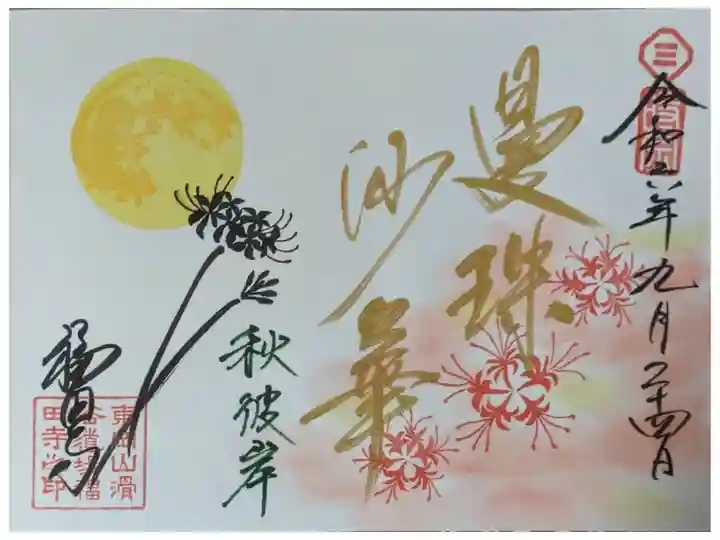 三
令和六年九月二十四日
曼珠
沙華
秋彼岸
山滑
谷道場福
田寺之印